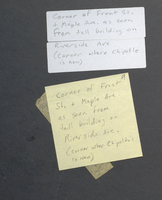 Corner of Front St.
+ Maple Ave. as seen
from tall building on
Riverside Ave
(corner where Chipotle
is now)
Corner of Front
Sts + Maple Ave
as seen from
tall building on
Riverside Ave.
(corner where Chipotle
is now)